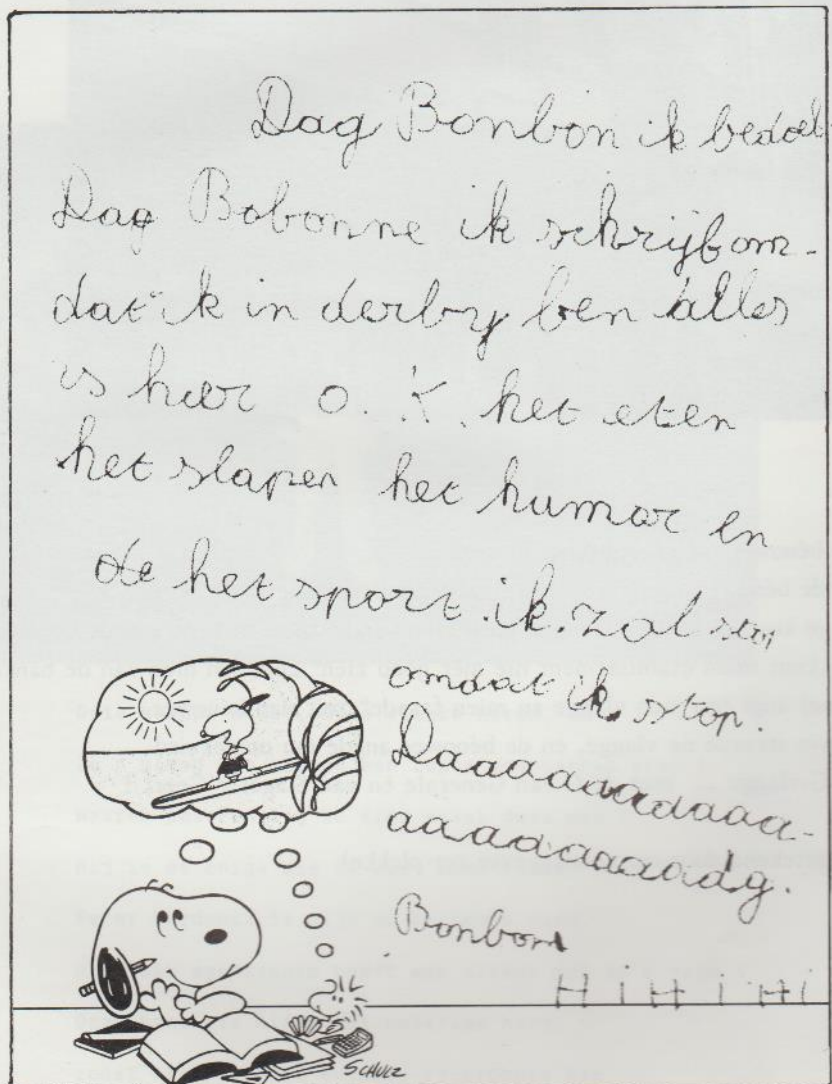 Dag Bonbon ik bedoel
Dag Bobonne ik schrijf om-
dat ik in derby ben alles
is hier o.K. het eten
het slapen het humor en
de het sport. ik. zal
omdat ik. stop.
Daaaaaaaaaaaa-
aaaaaaaaaadg.
Bonbon
HiHiHi
SCHULZ